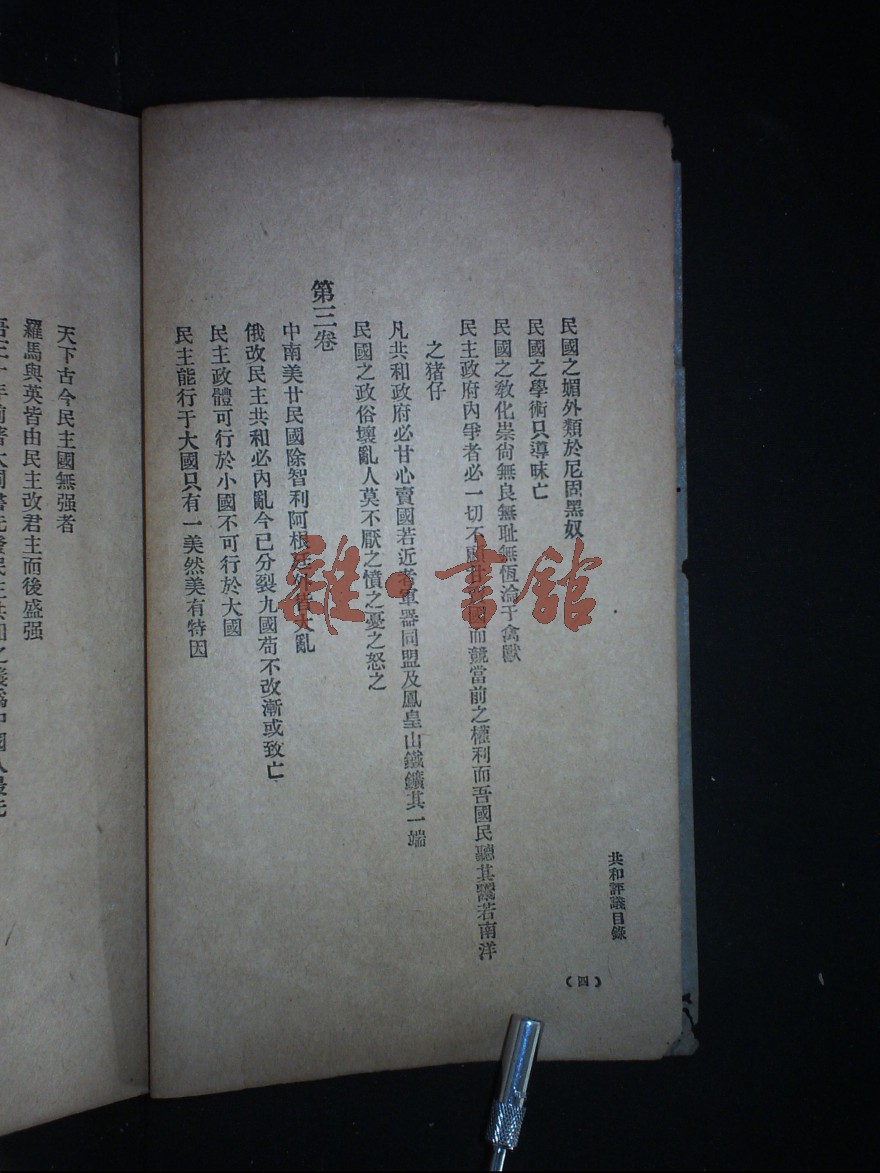 共和評議目錄
(四)
民國之媚外類於尼固黑奴
民國之學術只導昧亡
民國之敎化崇尙無良無耻無恆淪于禽獸
民主政府內爭者必一切不顧甘賣國而競當前之權利而吾國民聽其鬻若南洋
之猪仔
凡共和政府必甘心賣國若近者軍器同盟及鳳皇山鐵鑛其一端
民國之政俗壞亂人莫不厭之憤之憂之怒之
第三卷
中南美廿民國除智利阿根廷外皆大亂
俄改民主共和必內亂今已分裂九國茍不改漸或致亡
民主政體可行於小國不可行於大國
民主能行于大國只有一美然美有特因
天下古今民主國無强者
羅馬與英皆由民主改君主而後盛强
吾三十年前著大同書先發民主共和之義爲中國人最先
雜·書館